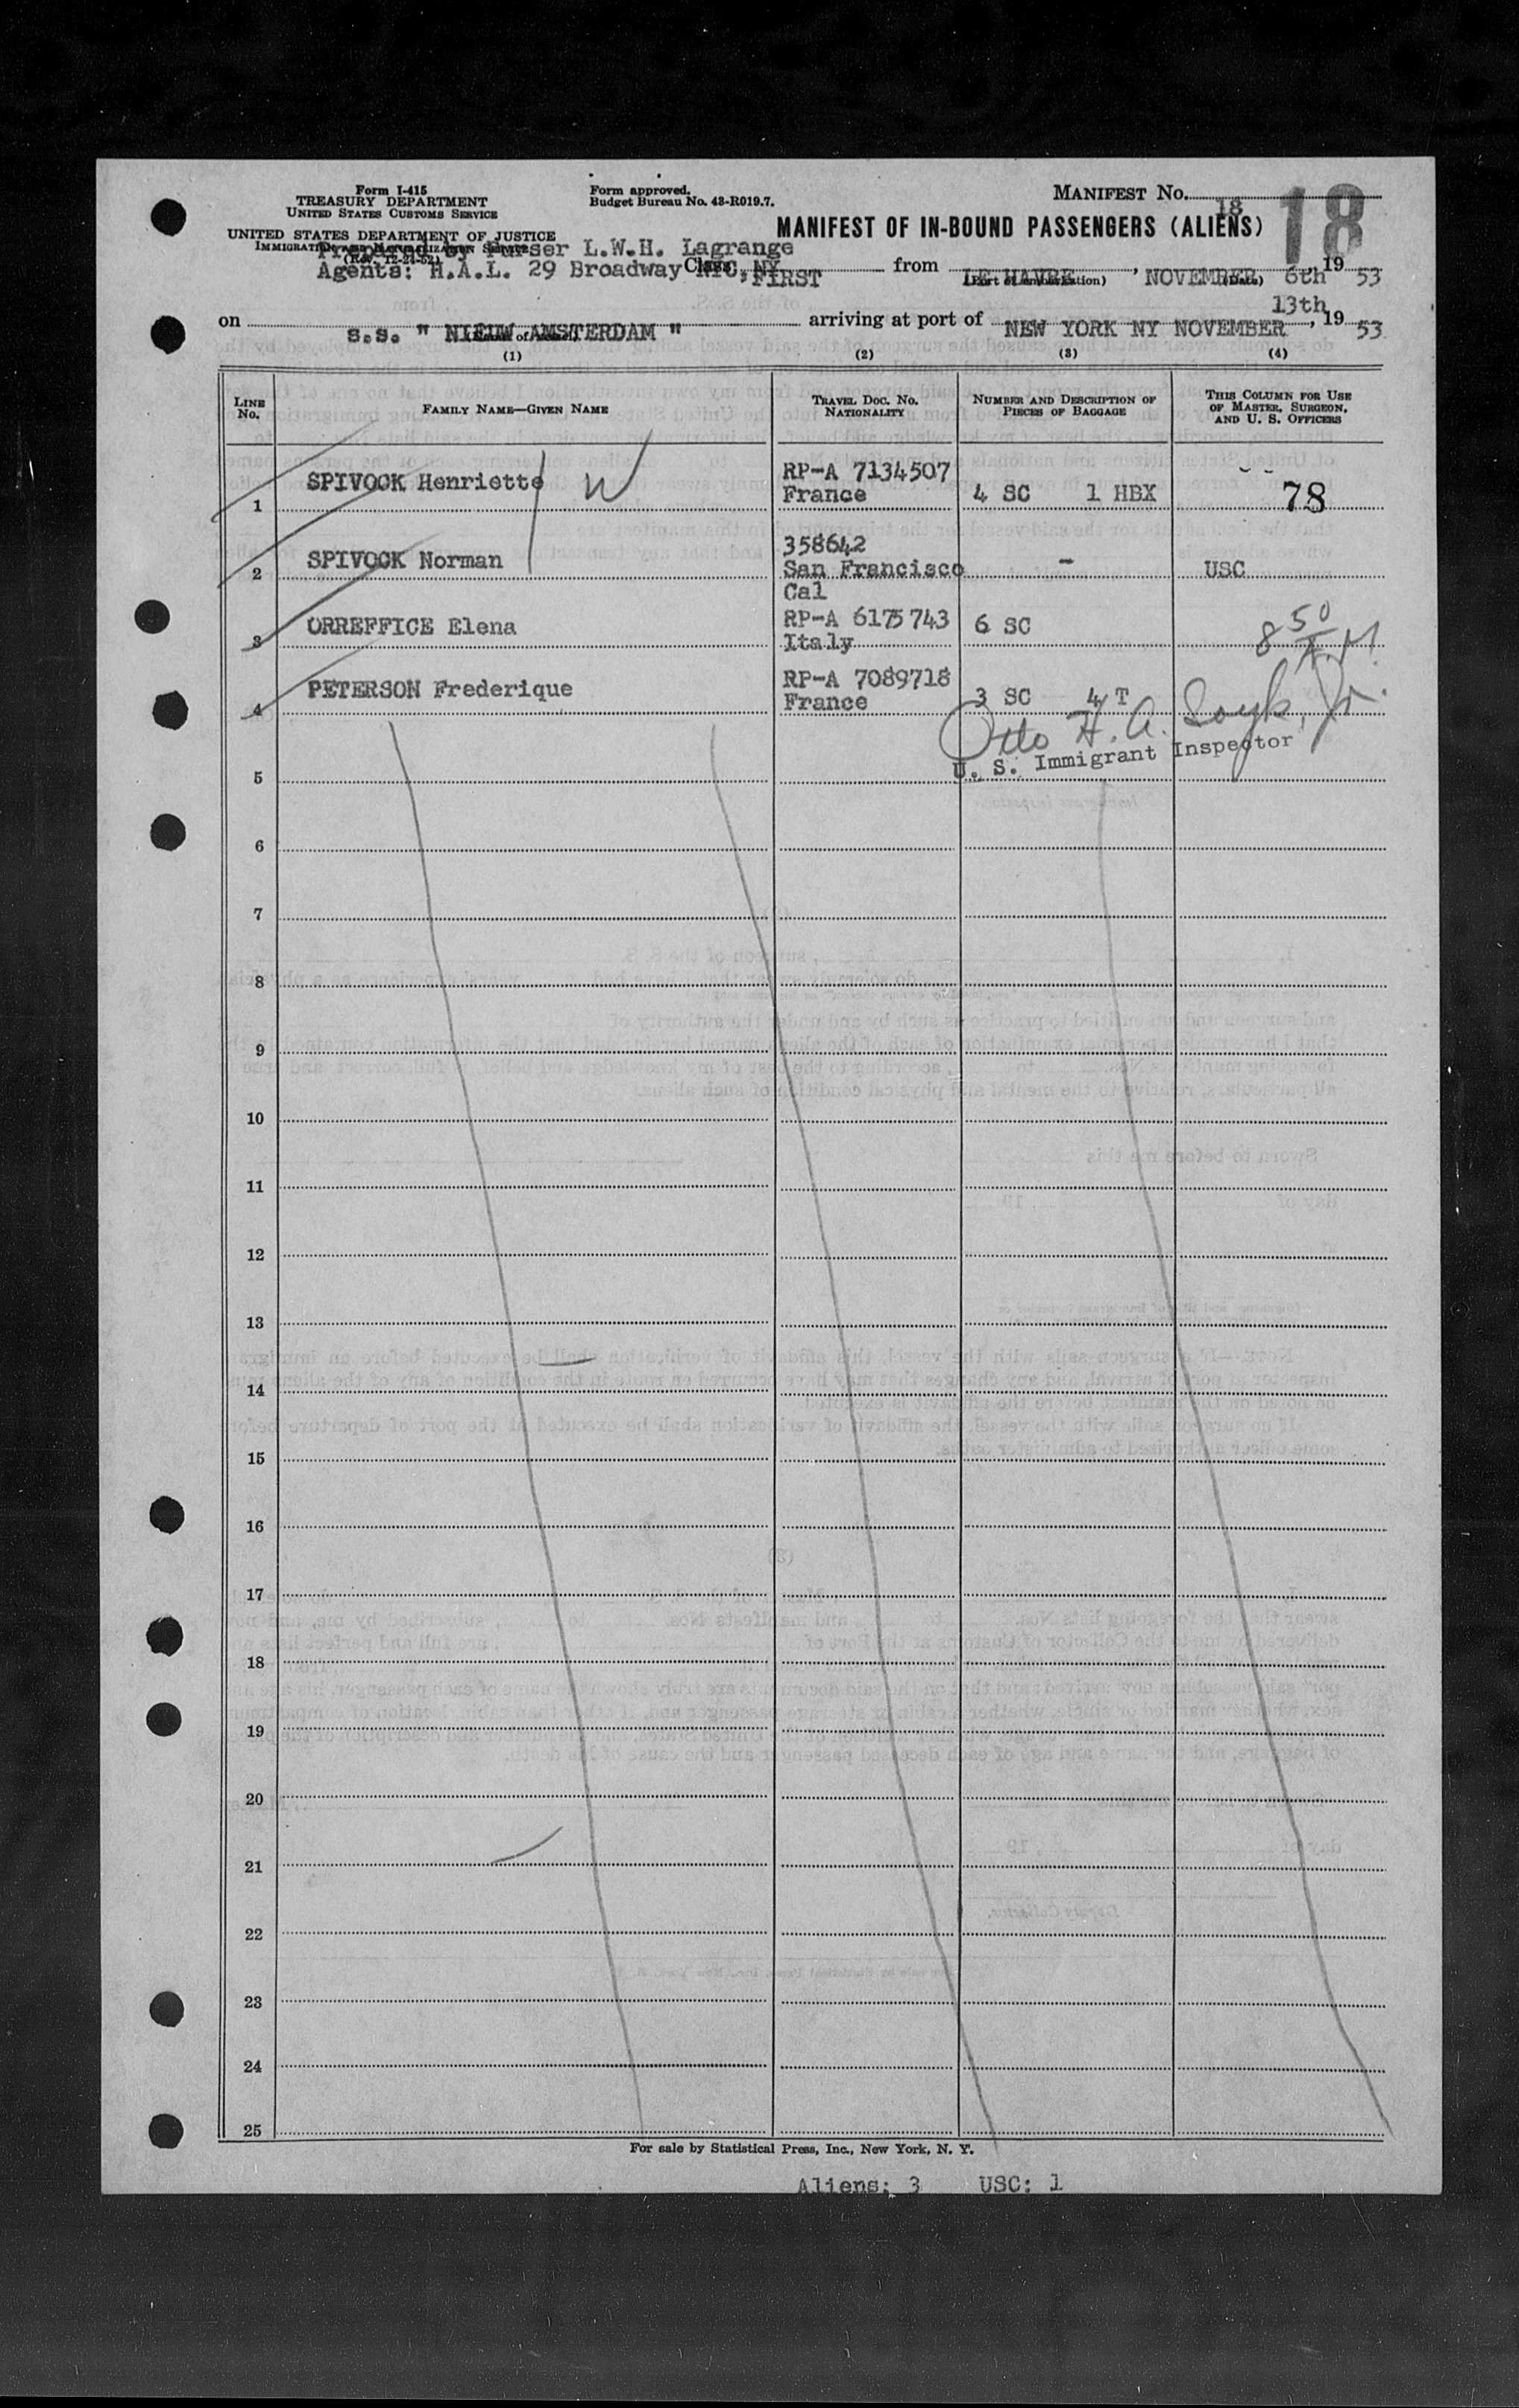 Form I-415
TREASURY DEPARTMENT
UNITED STATES CUSTOMS SERVICE
UNITED STATES DEPARTMENT OF JUSTICE
IMMIGRATION AND NATURALIZATION SERVICE
(Rev. 12-24-52)
Form approved.
Budget Bureau No. 43-R019.7.
MANIFEST NO. 18
18
MANIFEST OF IN-BOUND PASSENGERS (ALIENS)
Prepared by Purser L.W.H. Lagrange
Agents: H.A.L. 29 Broadway NYC, NY
Class FIRST from LE HAVRE, NOVEMBER 6th, 19 53
(Port of embarkation) (Date)
on s.s. " NIEUW AMSTERDAM " arriving at port of NEW YORK NY NOVEMBER 13th, 19 53
(1) (2) (3) (4)
LINE NO. FAMILY NAME—GIVEN NAME TRAVEL DOC. NO. NATIONALITY NUMBER AND DESCRIPTION OF PIECES OF BAGGAGE THIS COLUMN FOR USE OF MASTER, SURGEON, AND U. S. OFFICERS
1 SPIVOCK Henriette W RP-A 7134507 France 4 SC 1 HBX 78
2 SPIVOCK Norman 358642 San Francisco Cal - USC
3 ORREFFICE Elena RP-A 6175743 Italy 6 SC 8 50 A.M.
4 PETERSON Frederique RP-A 7089718 France 3 SC 4 T
Otto H. A.
U. S. Immigrant Inspector
5
6
7
8
9
10
11
12
13
14
15
16
17
18
19
20
21
22
23
24
25
For sale by Statistical Press, Inc., New York, N. Y.
Aliens: 3 USC: 1